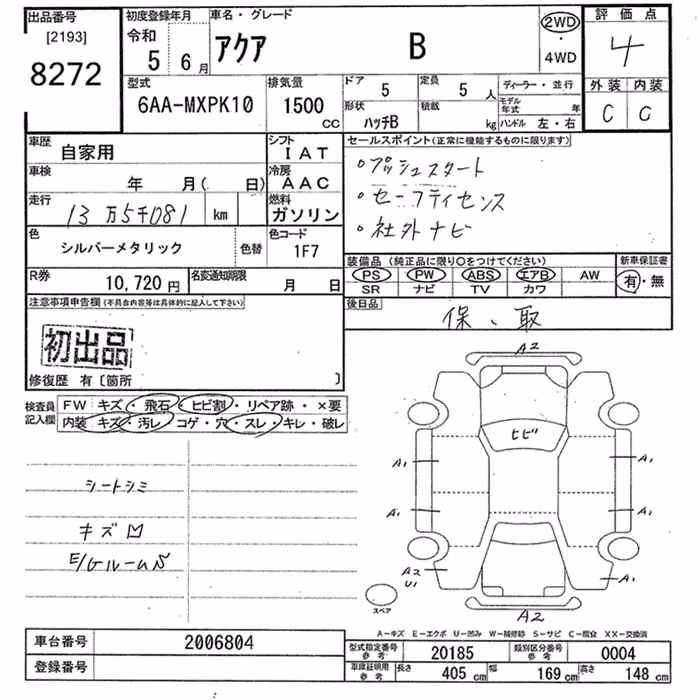 出品番号
[2193]
8272
初度登録年月
令和
5 6月
車名・グレード
アクア B
2WD
・
4WD
評価点
4
外装 内装
C C
型式
6AA-MXPK10
排気量
1500
cc
ドア
5
定員
5人
形状
ハッチB
積載
kg
ディーラー・並行
モデル年式 年
ハンドル 左・右
車歴
自家用
シフト
IAT
車検
年 月( 日)
冷房
AAC
走行
13万5千081 km
燃料
ガソリン
色
シルバーメタリック
色替
色コード
1F7
R券
10,720円
名変通知期限
月 日
セールスポイント(正常に機能するものに限ります)
・プッシュスタート
・セーフティセンス
・社外ナビ
装備品(純正品に限り○をつけてください)
PS PW ABS エアB AW
SR ナビ TV カワ
新車保証書
有・無
後日品
保、取
注意事項申告欄(不具合内容等は具体的に記入して下さい)
初出品
修復歴 有〔箇所 〕
検査員
記入欄
FW キズ・飛石・ヒビ割・リペア跡・×要
内装 キズ・汚レ・コゲ・穴・スレ・キレ・破レ
シートシミ
キズ凹
E/Gルーム S
A2
ヒビ
A1
A1
A1
A1
A2
U1
A2
A2
スペア
A-キズ E-エクボ U-凹み W-補修跡 S-サビ C-腐食 XX-交換済
車台番号
2006804
登録番号
型式指定番号
参考
20185
類別区分番号
参考
0004
車庫証明用
参考
長さ
405cm
幅
169cm
高さ
148cm